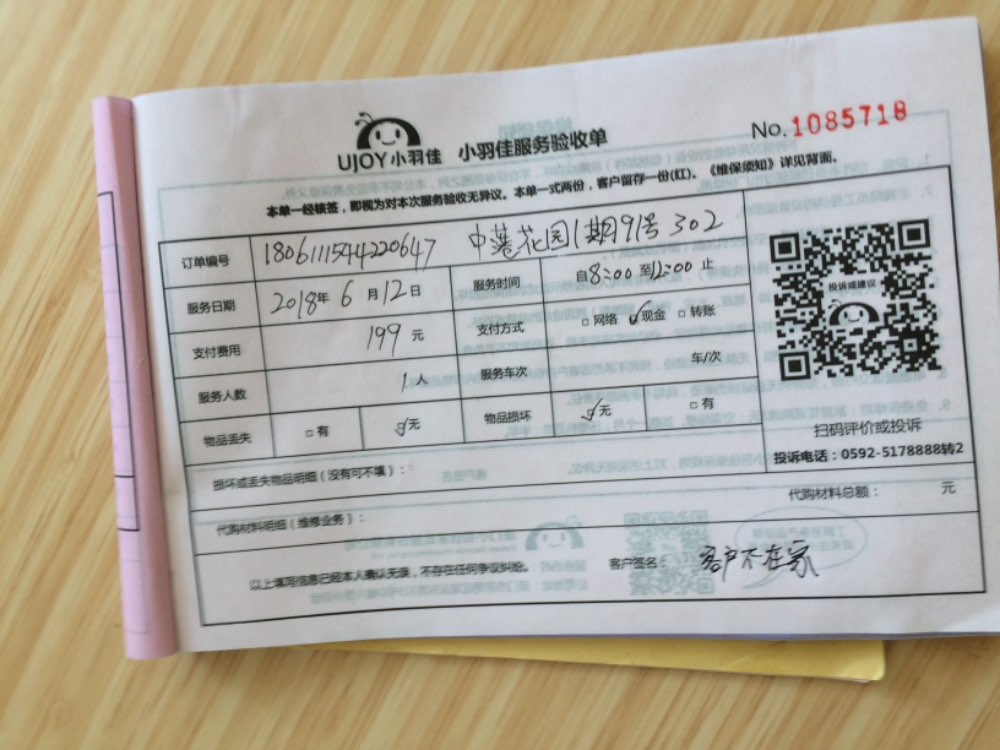 UJOY小羽佳 小羽佳服务验收单 No.1085718
本单一经核签，即视为对本次服务验收无异议。本单一式两份，客户留存一份(红)。《维保须知》详见背面。
订单编号 1806111544220647 中港花园1期91号302
服务日期 2018年6月12日 服务时间 自8:00至12:00止
支付费用 199元 支付方式 □网络 ☑现金 □转账
服务人数 1人 服务车次 车/次
物品丢失 □有 ☑无 物品损坏 ☑无 □有
投诉或建议
扫码评价或投诉
投诉电话：0592-5178888转2
损坏或丢失物品明细（没有可不填）：
代购材料明细（维修业务）： 代购材料总额： 元
以上填写信息已经本人确认无误，不存在任何争议纠纷。 客户签名： 客户不在家